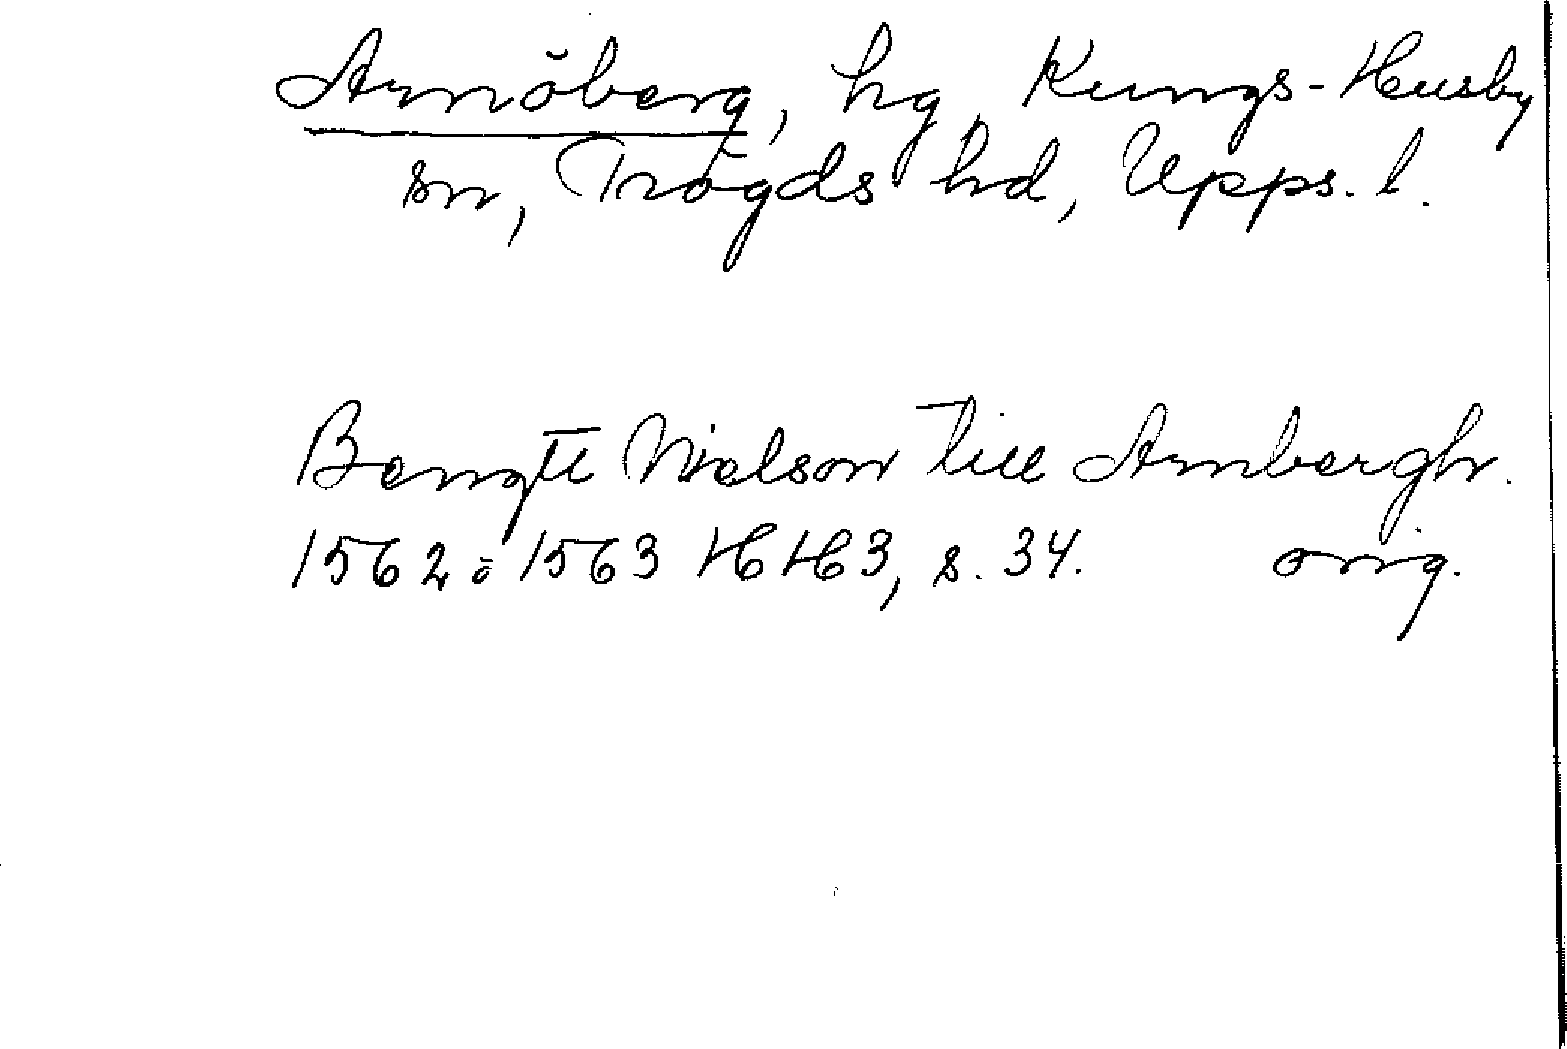 Arnöberg, hg, Kungs-Husby
sn, Trögds hd, Upps. l.
Bengtt Nielson till Arnbergh.
1562 ö 1563 HH 3, s. 34. orig.